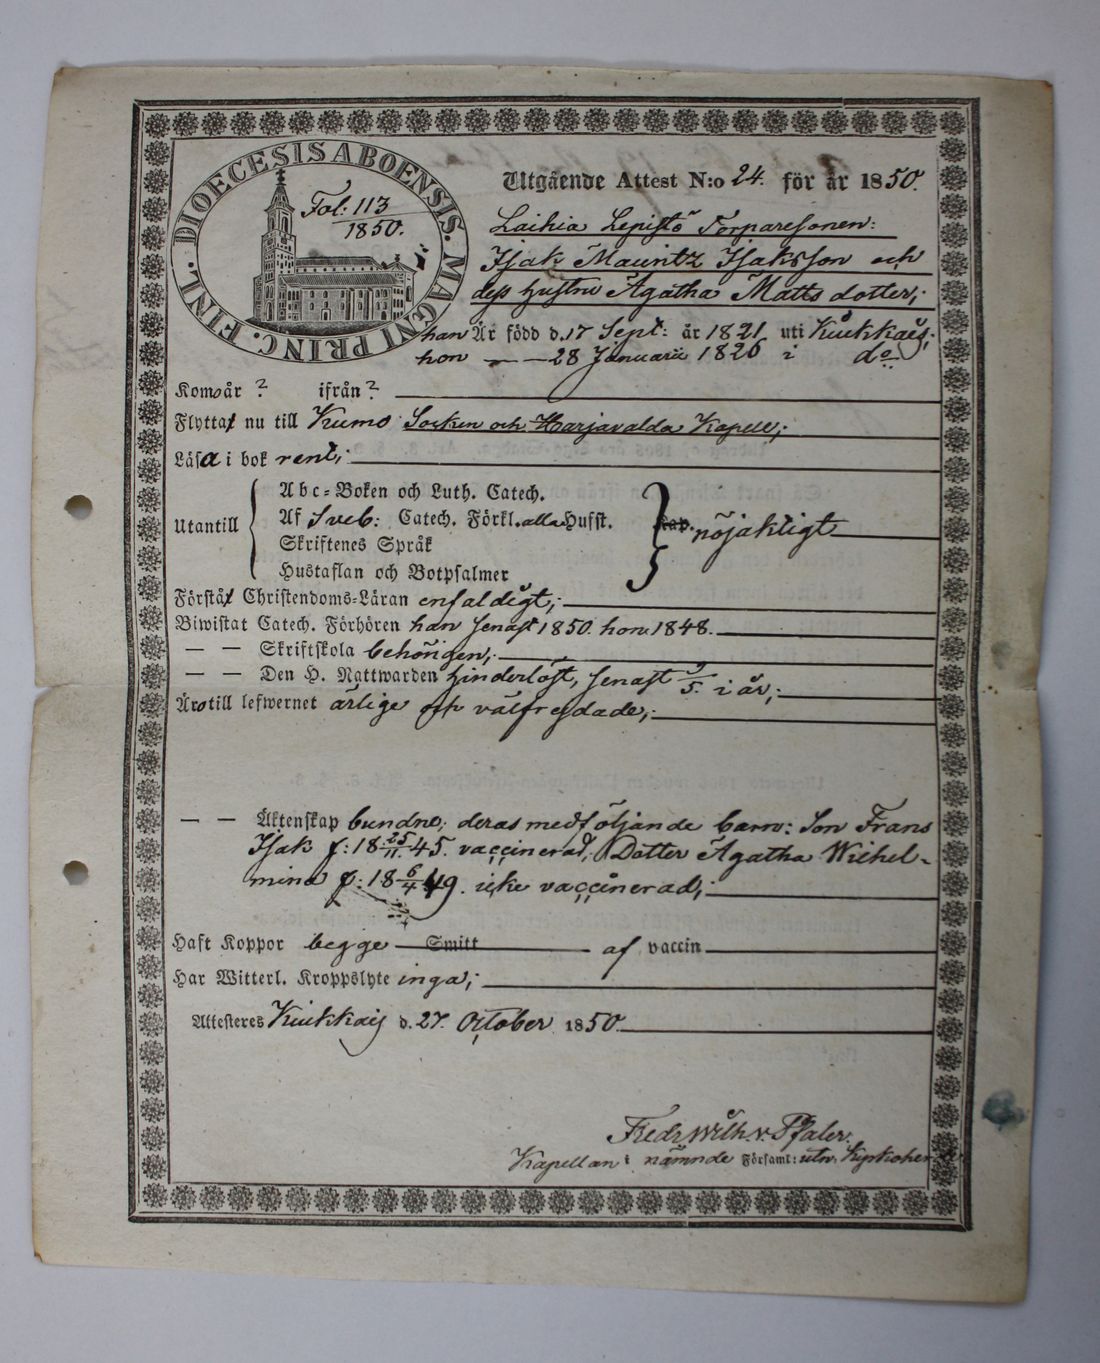 DIOECESIS ABOENSIS. MAGNI PRINC. FINL.
Fol: 113
1850.
Utgående Attest N:o 24. för år 1850.
Laihia Lepistö Torparesonen:
Isak Mauritz Isaksson och
dess hustru Agatha Matts dotter;
han Är född d. 17 Sept: år 1821 uti Kiukkais;
hon — — 28 Januarii 1826 i do
Kom år ? ifrån ?
Flytta nu till Kumo Socken och Harjavalda Kapell;
Läsa i bok rent;
Utantill
Abc-Boken och Luth. Catech.
Af Sveb: Catech. Förkl. alla Hufst.
Skriftenes Språk
Hustaflan och Botpsalmer
nöjaktigt
Förstå Christendoms-Läran enfaldigt;
Biwistat Catech. Förhören han senast 1850. hon 1848.
— — Skriftskola behörigen;
— — Den H. Nattwarden hinderlöst, senast 9/5 i år;
Äro till lefwernet ärlige och välfrejdade;
— — Äktenskap bundne; deras medföljande barn: Son Frans
Isak f: 18 25/11 45. vaccinerad; Dotter Agatha Wilhel-
mina f: 18 6/4 49. icke vaccinerad;
Haft Koppor begge Smitt af vaccin
Har Witterl. Kroppslyte inga;
Attesteres Kiukkais d. 27. October 1850.
Fredr Wilh v. Pfaler.
Kapellan i nämnde Församl: